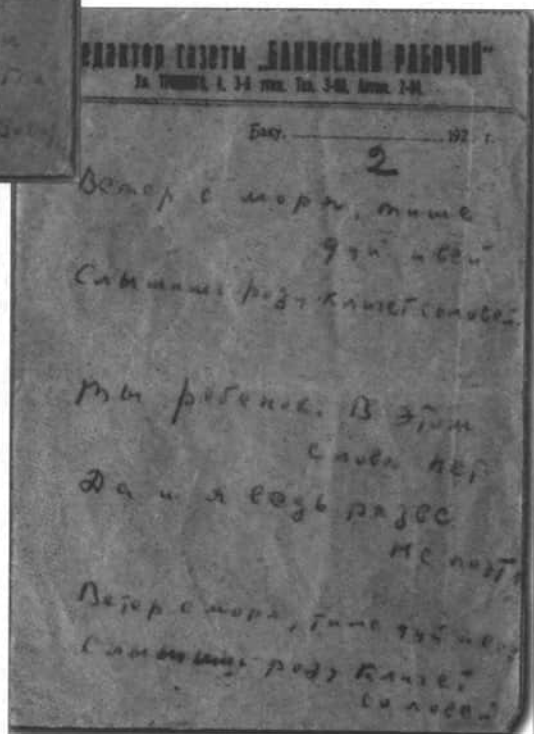 Редактор газеты „БАКИНСКИЙ РАБОЧИЙ“
Баку, 192 г.
2
Ветер с моря, тише
дуй и вей
Слышишь розу кличет соловей.
Ты ребенок. В этом
слова нет
Да и я ведь разве
не поэт
Ветер с моря, тише дуй и вей
Слышишь розу кличет
соловей